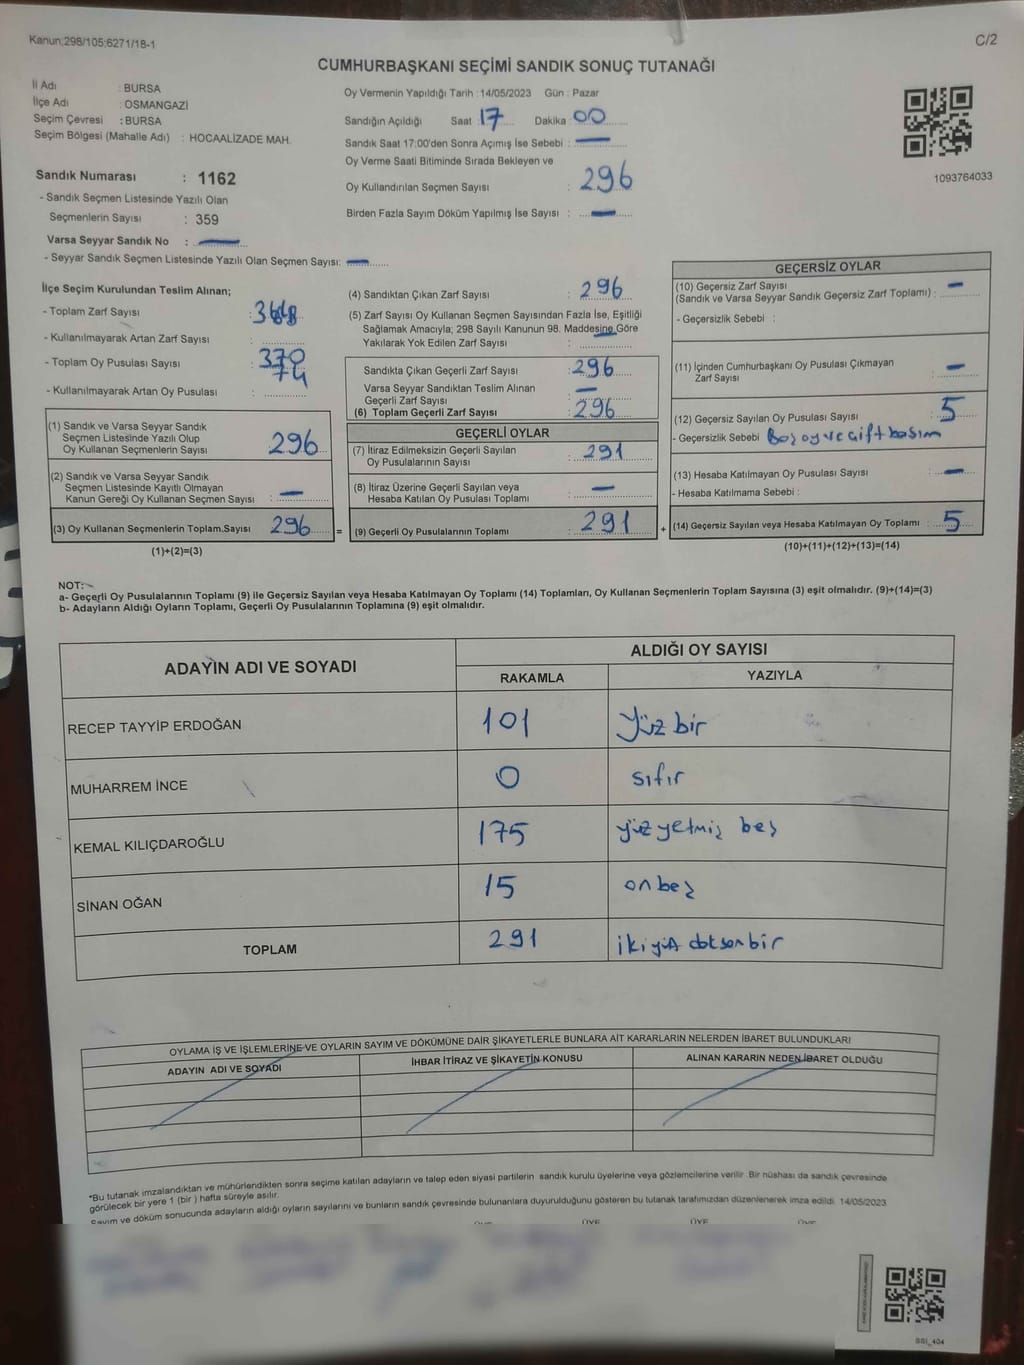 Kanun;298/105;6271/18-1
C/2
CUMHURBAŞKANI SEÇİMİ SANDIK SONUÇ TUTANAĞI
İl Adı : BURSA
İlçe Adı : OSMANGAZİ
Seçim Çevresi : BURSA
Seçim Bölgesi (Mahalle Adı) : HOCAALİZADE MAH.
Oy Vermenin Yapıldığı Tarih : 14/05/2023 Gün : Pazar
Sandığın Açıldığı Saat : 17 Dakika : 00
Sandık Saat 17:00'den Sonra Açımış İse Sebebi : —
Oy Verme Saati Bitiminde Sırada Bekleyen ve
Oy Kullandırılan Seçmen Sayısı : 296
Birden Fazla Sayım Döküm Yapılmış İse Sayısı : —
1093764033
Sandık Numarası : 1162
- Sandık Seçmen Listesinde Yazılı Olan
Seçmenlerin Sayısı : 359
Varsa Seyyar Sandık No : —
- Seyyar Sandık Seçmen Listesinde Yazılı Olan Seçmen Sayısı: —
İlçe Seçim Kurulundan Teslim Alınan;
- Toplam Zarf Sayısı :
- Kullanılmayarak Artan Zarf Sayısı :
- Toplam Oy Pusulası Sayısı : 370
- Kullanılmayarak Artan Oy Pusulası : 74
(1) Sandık ve Varsa Seyyar Sandık
Seçmen Listesinde Yazılı Olup
Oy Kullanan Seçmenlerin Sayısı 296
(2) Sandık ve Varsa Seyyar Sandık
Seçmen Listesinde Kayıtlı Olmayan
Kanun Gereği Oy Kullanan Seçmen Sayısı : —
(3) Oy Kullanan Seçmenlerin Toplam.Sayısı 296 =
(1)+(2)=(3)
(4) Sandıktan Çıkan Zarf Sayısı : 296
(5) Zarf Sayısı Oy Kullanan Seçmen Sayısından Fazla İse, Eşitliği
Sağlamak Amacıyla; 298 Sayılı Kanunun 98. Maddesine Göre
Yakılarak Yok Edilen Zarf Sayısı : —
Sandıkta Çıkan Geçerli Zarf Sayısı : 296
Varsa Seyyar Sandıktan Teslim Alınan
Geçerli Zarf Sayısı : —
(6) Toplam Geçerli Zarf Sayısı : 296
GEÇERLİ OYLAR
(7) İtiraz Edilmeksizin Geçerli Sayılan
Oy Pusulalarının Sayısı : 291
(8) İtiraz Üzerine Geçerli Sayılan veya
Hesaba Katılan Oy Pusulası Toplamı : —
(9) Geçerli Oy Pusulalarının Toplamı : 291 +
GEÇERSİZ OYLAR
(10) Geçersiz Zarf Sayısı
(Sandık ve Varsa Seyyar Sandık Geçersiz Zarf Toplamı) : —
- Geçersizlik Sebebi :
(11) İçinden Cumhurbaşkanı Oy Pusulası Çıkmayan
Zarf Sayısı : —
(12) Geçersiz Sayılan Oy Pusulası Sayısı : 5
- Geçersizlik Sebebi Boş oy ve çift basım
(13) Hesaba Katılmayan Oy Pusulası Sayısı : —
- Hesaba Katılmama Sebebi :
(14) Geçersiz Sayılan veya Hesaba Katılmayan Oy Toplamı : 5
(10)+(11)+(12)+(13)=(14)
NOT:
a- Geçerli Oy Pusulalarının Toplamı (9) ile Geçersiz Sayılan veya Hesaba Katılmayan Oy Toplamı (14) Toplamları, Oy Kullanan Seçmenlerin Toplam Sayısına (3) eşit olmalıdır. (9)+(14)=(3)
b- Adayların Aldığı Oyların Toplamı, Geçerli Oy Pusulalarının Toplamına (9) eşit olmalıdır.
ADAYIN ADI VE SOYADI
ALDIĞI OY SAYISI
RAKAMLA YAZIYLA
RECEP TAYYİP ERDOĞAN 101 Yüz bir
MUHARREM İNCE 0 sıfır
KEMAL KILIÇDAROĞLU 175 yüz yetmiş beş
SİNAN OĞAN 15 onbeş
TOPLAM 291 ikiyüz doksanbir
OYLAMA İŞ VE İŞLEMLERİNE VE OYLARIN SAYIM VE DÖKÜMÜNE DAİR ŞİKAYETLERLE BUNLARA AİT KARARLARIN NELERDEN İBARET BULUNDUKLARI
ADAYIN ADI VE SOYADI İHBAR İTİRAZ VE ŞİKAYETİN KONUSU ALINAN KARARIN NEDEN İBARET OLDUĞU
*Bu tutanak imzalandıktan ve mühürlendikten sonra seçime katılan adayların ve talep eden siyasi partilerin sandık kurulu üyelerine veya gözlemcilerine verilir. Bir nüshası da sandık çevresinde
görülecek bir yere 1 (bir ) hafta süreyle asılır.
Sayım ve döküm sonucunda adayların aldığı oyların sayılarını ve bunların sandık çevresinde bulunanlara duyurulduğunu gösteren bu tutanak tarafımızdan düzenlenerek imza edildi. 14/05/2023
ÜYE ÜYE ÜYE ÜYE
SSI_404